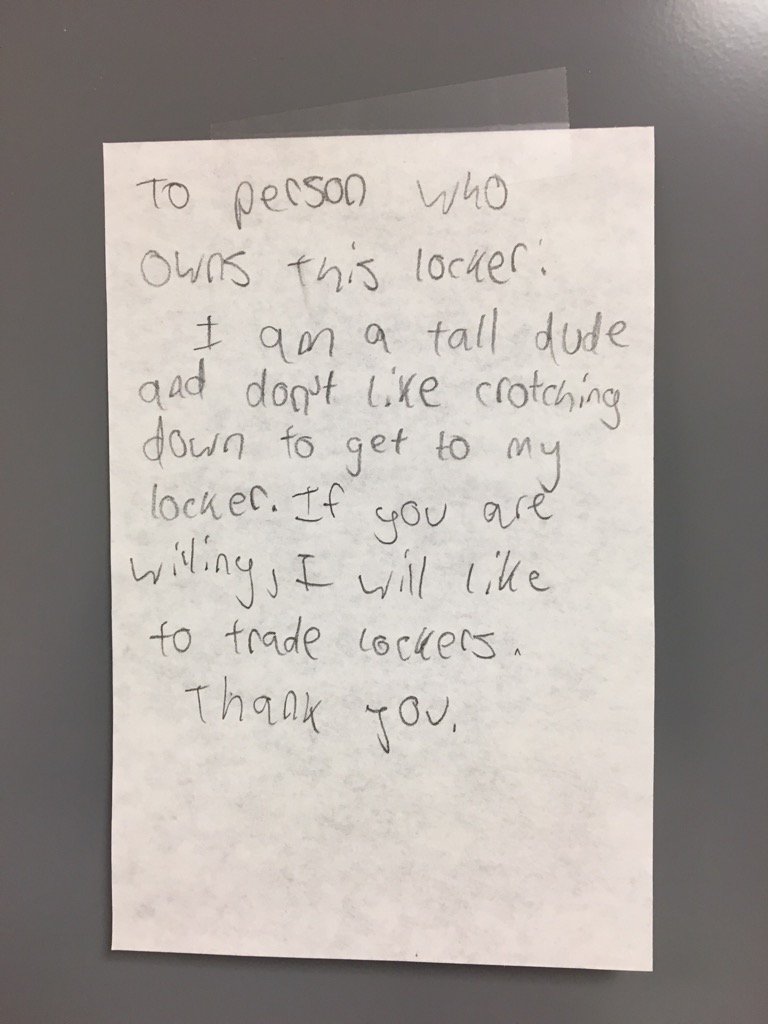 To person who
owns this locker:
I am a tall dude
and don't like crotching
down to get to my
locker. If you are
willing, I will like
to trade lockers.
Thank you.